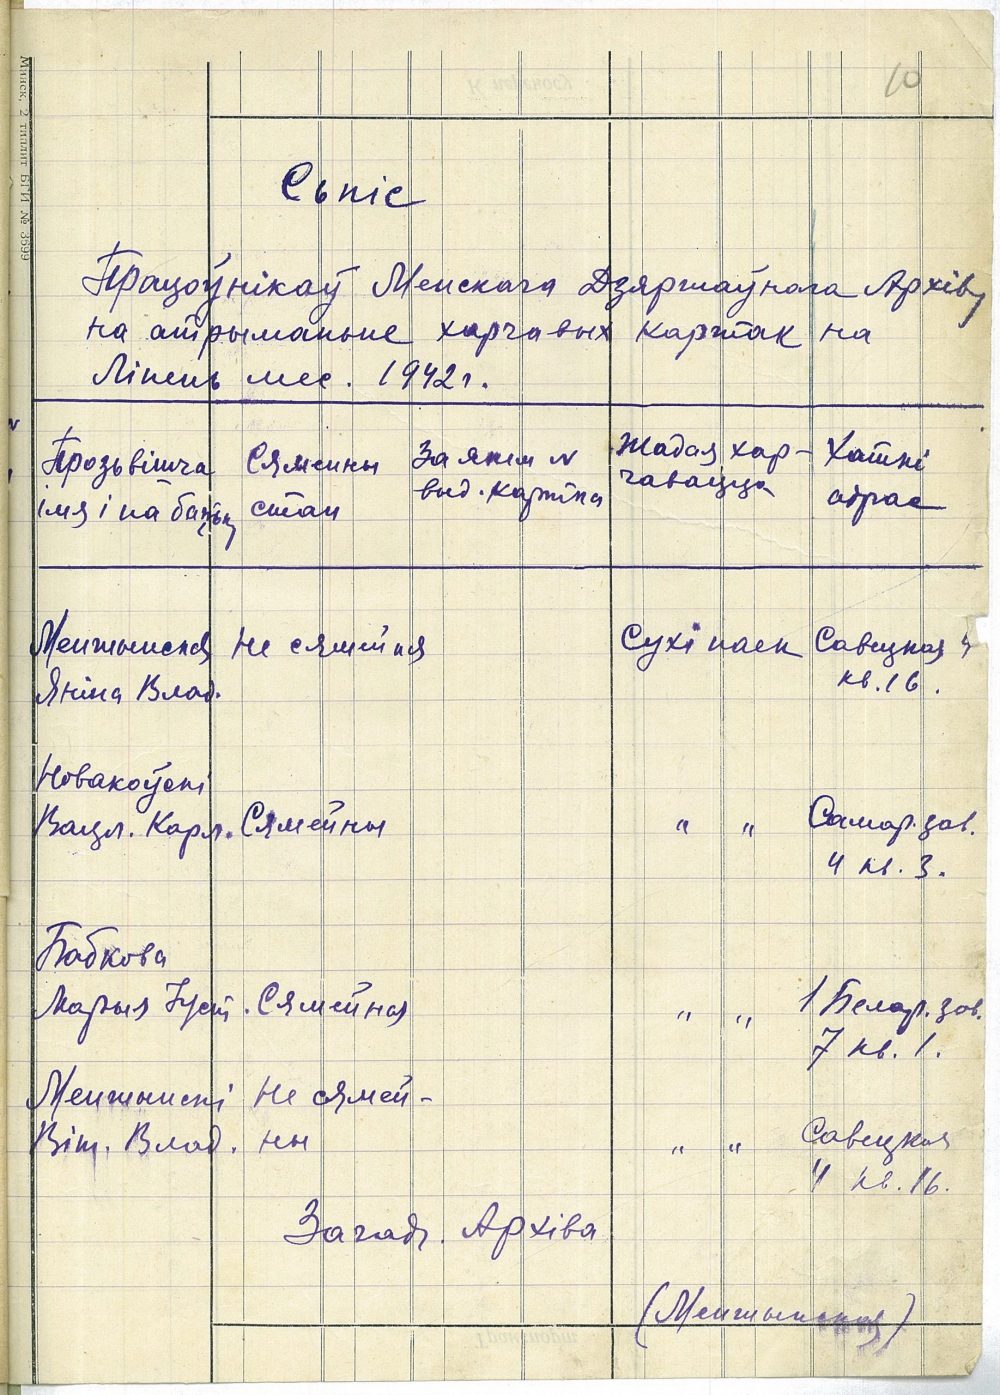 10
Минск, 2 типлит БГИ № 3599
Сьпіс
Працоўнікаў Менскага Дзяржаўнага Архіву
на атрыманьне харчавых картак на
Ліпень мес. 1942 г.
Прозьвішча Сямейны За якім № Жадая хар- Хатні
імя і па бацьку стан выд. картка чавацца адрас
Менжынская Не сямейная Сухі паек Савецкая 4
Яніна Влад. кв. 16.
Новакоўскі
Вацл. Карл. Сямейны " " Самар. зав.
4 кв. 3.
Бабкова
Марыя Іуст. Сямейная " " 1 Белар. зав.
7 кв. 1.
Менжынскі Не сямей-
Віт. Влад. ны " " Савецкая
4 кв. 16.
Загадч. Архіва
(Менжынская)